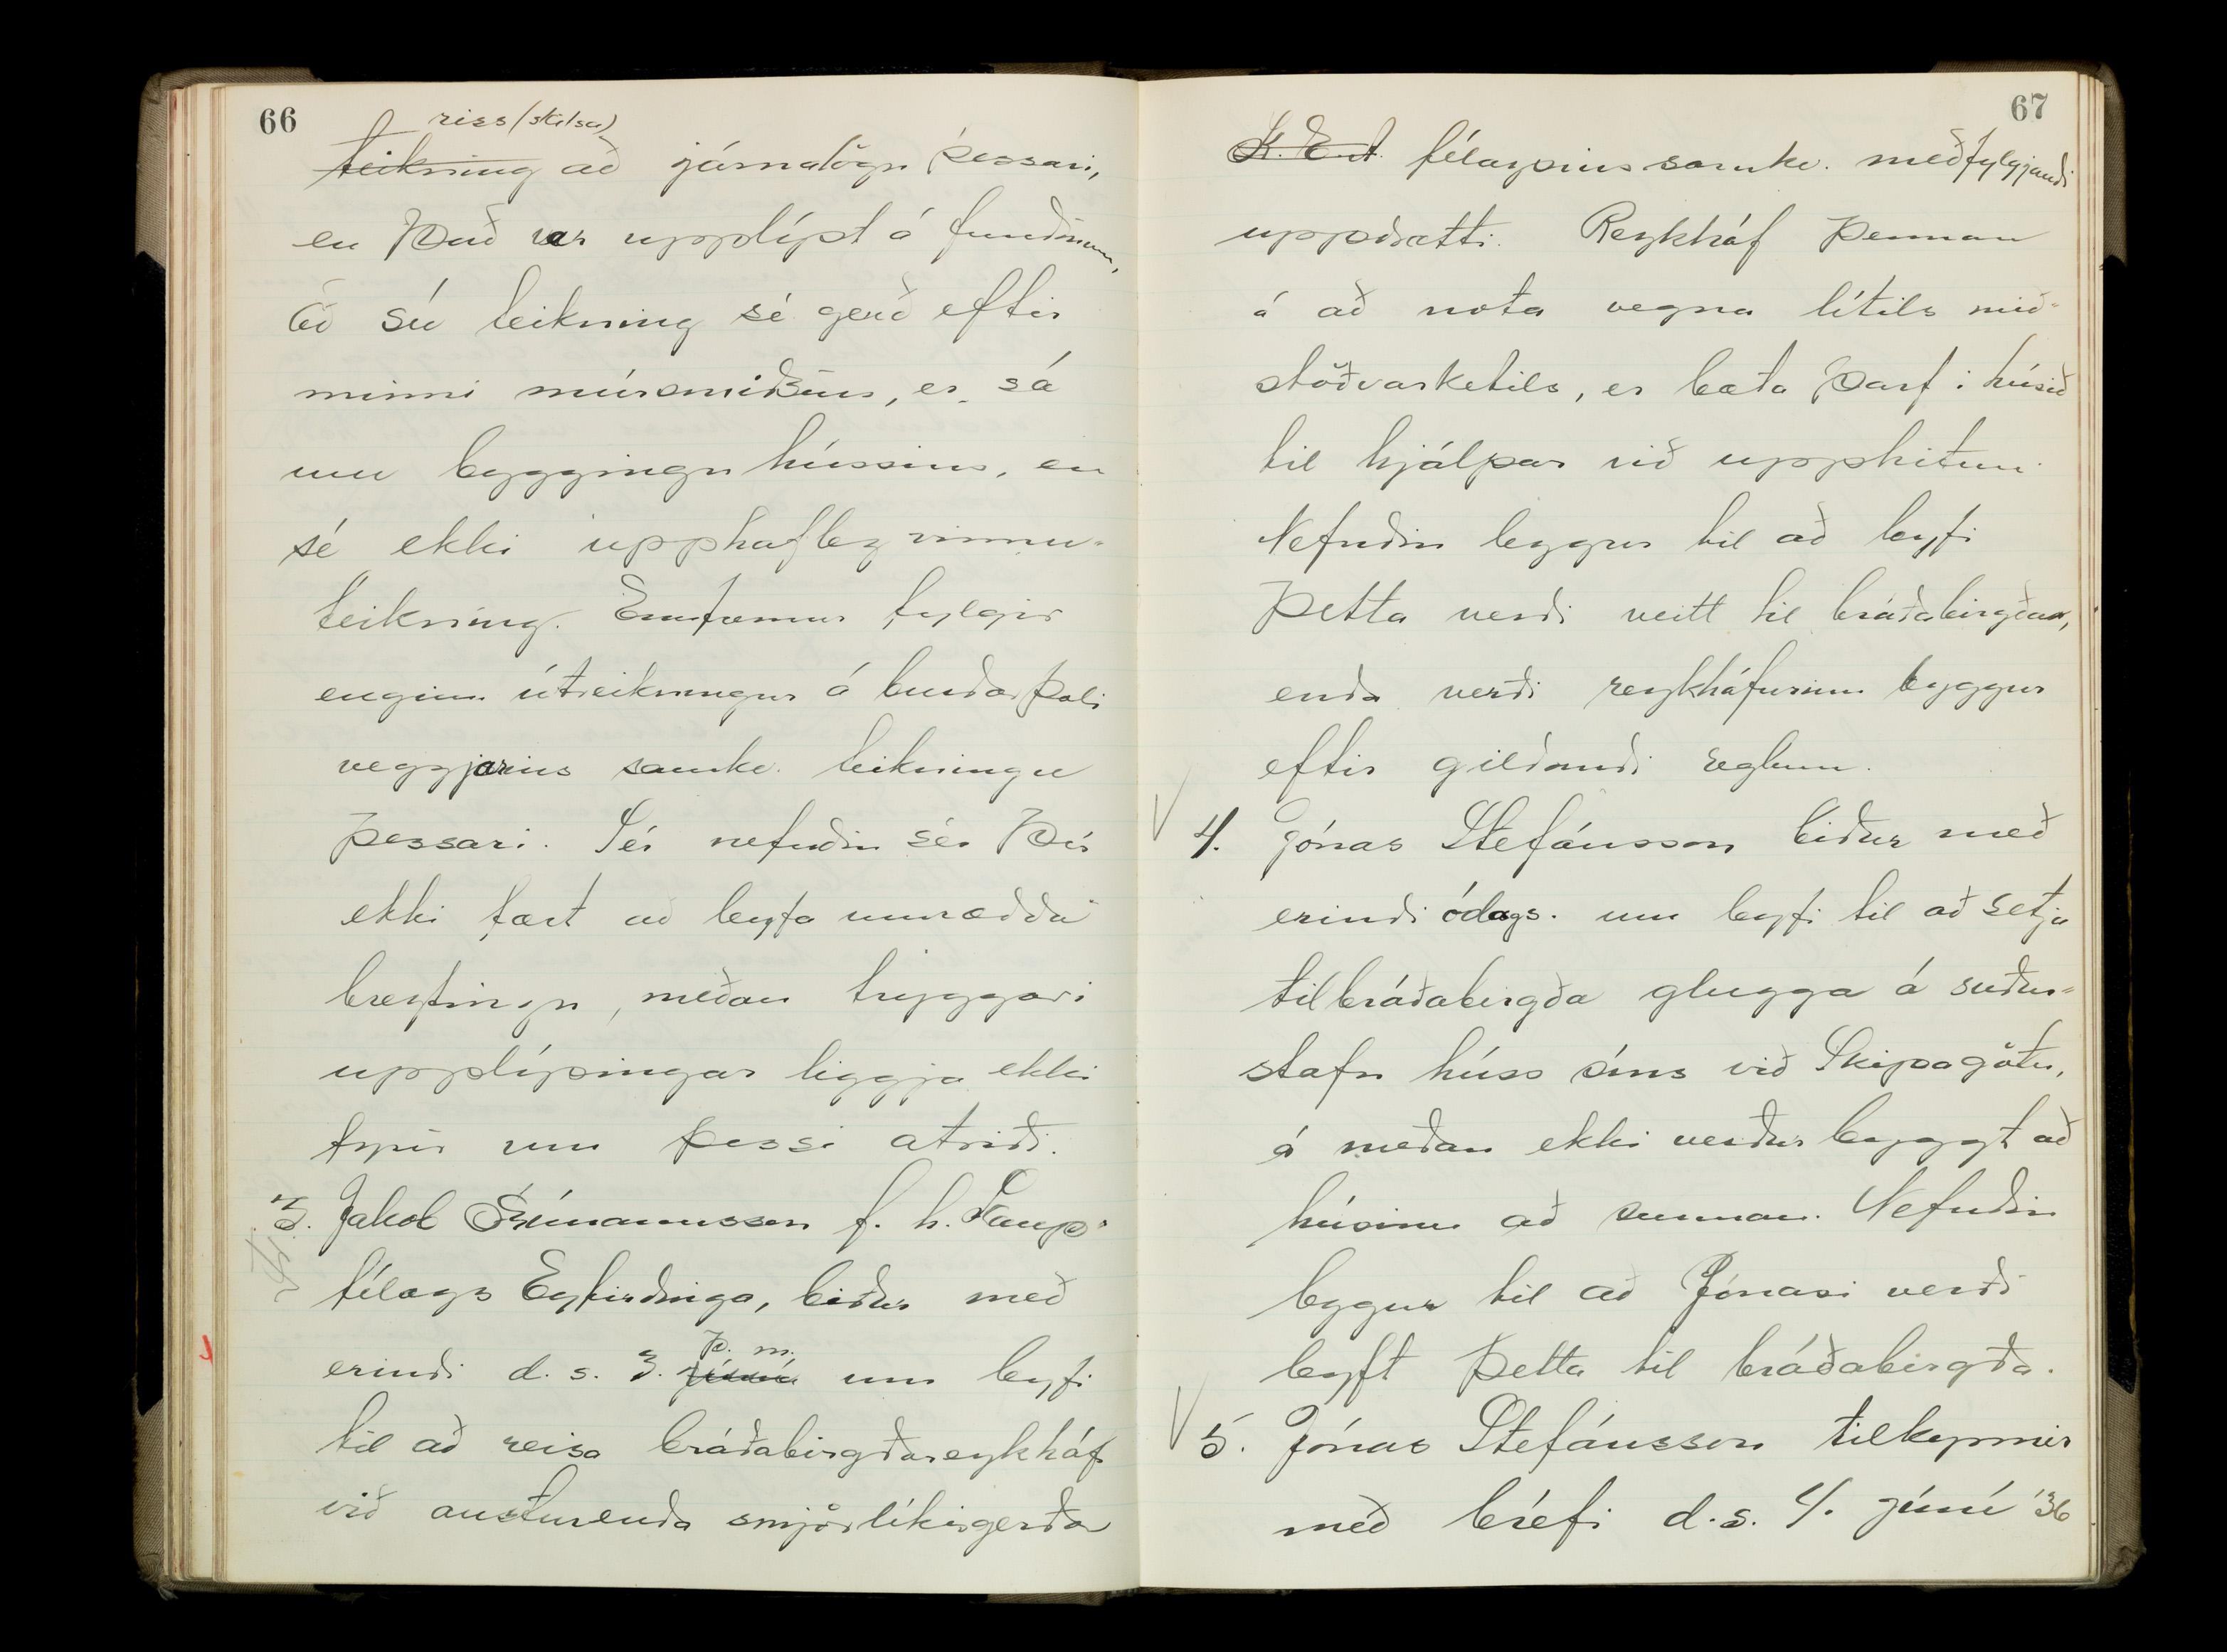 66
riss (skissu)
teikning að járnalögn þessari,
en það var upplýst á fundinum,
að sú teikning sé gerð eftir
minni múrsmiðsins, er sá
um byggingu hússins, en
sé ekki upphafleg vinnu-
teikning. Ennfremur fylgir
enginn útreikningur á burðarþoli
veggjarins samkv. teikningu
þessari. Sér nefndin sér því
ekki fært að leyfa umrædda
breytingu, meðan tryggari
upplýsingar liggja ekki
fyrir um þessi atriði.
3. Jakob Frímannsson f. h. Kaup-
félags Eyfirðinga, biður með
þ. m.
erindi d. s. 3. júní um leyfi
til að reisa bráðabirgðareykháf
við austurenda smjörlíkisgerðar
67
K. E. A. félagsins samkv. meðfylgjandi
uppdrætti. Reykháf þennan
á að nota vegna lítils mið-
stöðvarketils, er bæta þarf í húsið
til hjálpar við upphitun.
Nefndin leggur til að leyfi
þetta verði veitt til bráðabirgðar,
enda verði reykháfurinn byggur
eftir gildandi reglum.
4. Jónas Stefánsson biður með
erindi ódags. um leyfi til að setja
til bráðabirgða glugga á suður-
stafn húss síns við Skipagötu,
á meðan ekki verður byggt að
húsinu að sunnan. Nefndin
leggur til að Jónasi verði
leyft þetta til bráðabirgða.
5. Jónas Stefánsson tilkynnir
með bréfi d. s. 4. júní '36